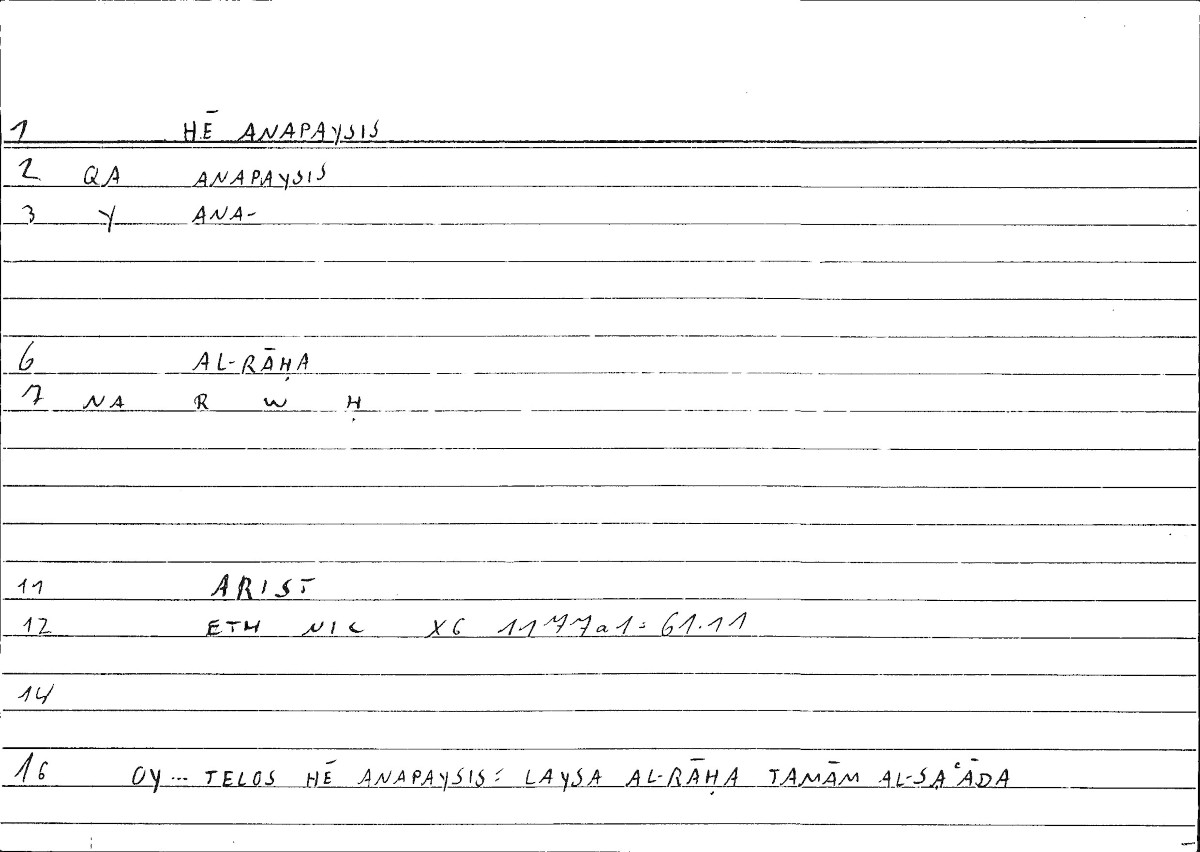 1 HĒ ANAPAYSIS
2 QA ANAPAYSIS
3 Y ANA-
6 AL-RĀḤA
7 NA R W Ḥ
11 ARIST
12 ETH NIC X6 1177a1: 61.11
14
16 OY... TELOS HĒ ANAPAYSIS: LAYSA AL-RĀḤA TAMĀM AL-SAʿĀDA